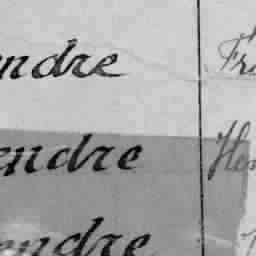 endre Fr
endre Hen
endre